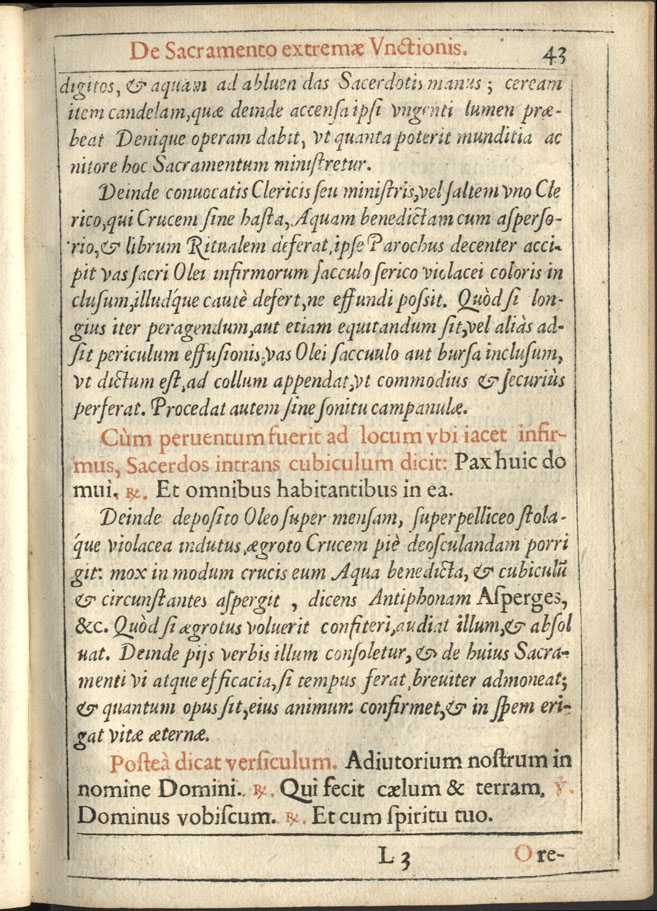 De Sacramento extremæ Vnctionis. 43
digitos, & aquam ad abluen das Sacerdotis manus; ceream
item candelam, quæ deinde accensa ipsi vngenti lumen præ-
beat Denique operam dabit, vt quanta poterit munditia ac
nitore hoc Sacramentum ministretur.
Deinde conuocatis Clericis seu ministris, vel saltem vno Cle
rico, qui Crucem sine hasta, Aquam benedictam cum asperso-
rio, & librum Ritualem deferat, ipse Parochus decenter acci-
pit vas sacri Olei infirmorum sacculo serico violacei coloris in
clusum, illudq́ue cautè defert, ne effundi possit. Quòd si lon-
gius iter peragendum, aut etiam equitandum sit, vel aliàs ad-
sit periculum effusionis, vas Olei saccuulo aut bursa inclusum,
vt dictum est, ad collum appendat, vt commodius & securiùs
perferat. Procedat autem sine sonitu campanulæ.
Cùm peruentum fuerit ad locum vbi iacet infir-
mus, Sacerdos intrans cubiculum dicit: Pax huic do
mui. ℞. Et omnibus habitantibus in ea.
Deinde deposito Oleo super mensam, superpelliceo stola-
q́ue violacea indutus, ægroto Crucem piè deosculandam porri
git: mox in modum crucis eum Aqua benedicta, & cubiculũ
& circunstantes aspergit, dicens Antiphonam Asperges,
&c. Quòd si ægrotus voluerit confiteri, audiat illum, & absol
uat. Deinde pijs verbis illum consoletur, & de huius Sacra-
menti vi atque efficacia, si tempus ferat, breuiter admoneat;
& quantum opus sit, eius animum confirmet, & in spem eri-
gat vitæ æternæ.
Posteà dicat versiculum. Adiutorium nostrum in
nomine Domini. ℞. Qui fecit cælum & terram. ℣.
Dominus vobiscum. ℞. Et cum spiritu tuo.
L 3 Ore-